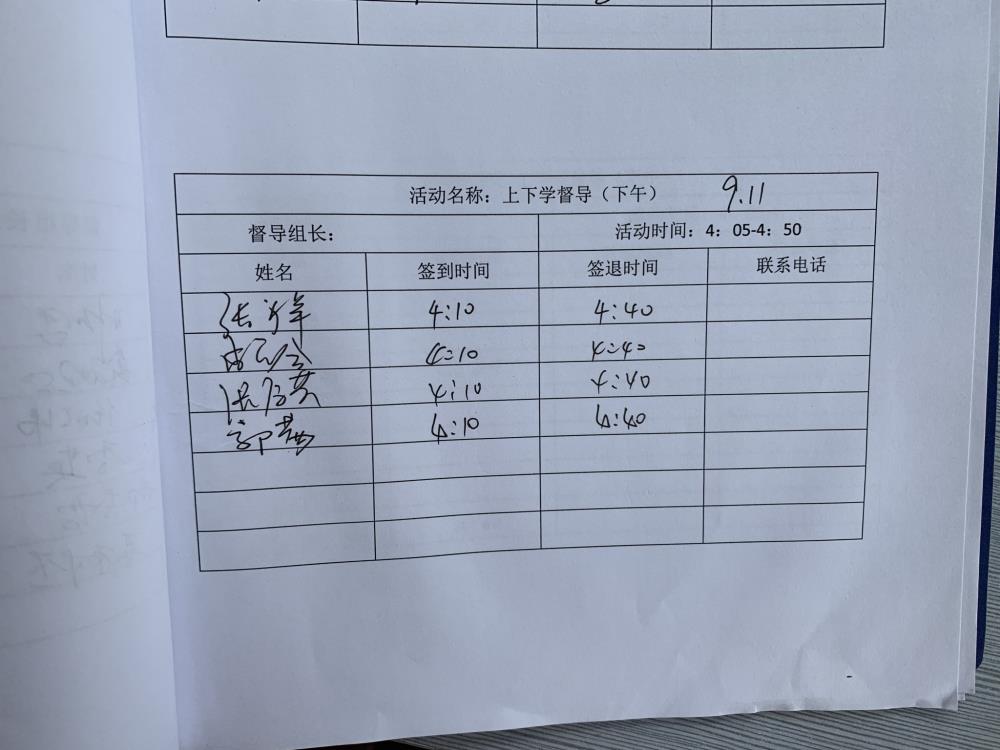 活动名称：上下学督导（下午） 9.11
督导组长： 活动时间：4：05-4：50
姓名 签到时间 签退时间 联系电话
张 4:10 4:40
4:10 4:40
张 4:10 4:40
郭茜 4:10 4:40